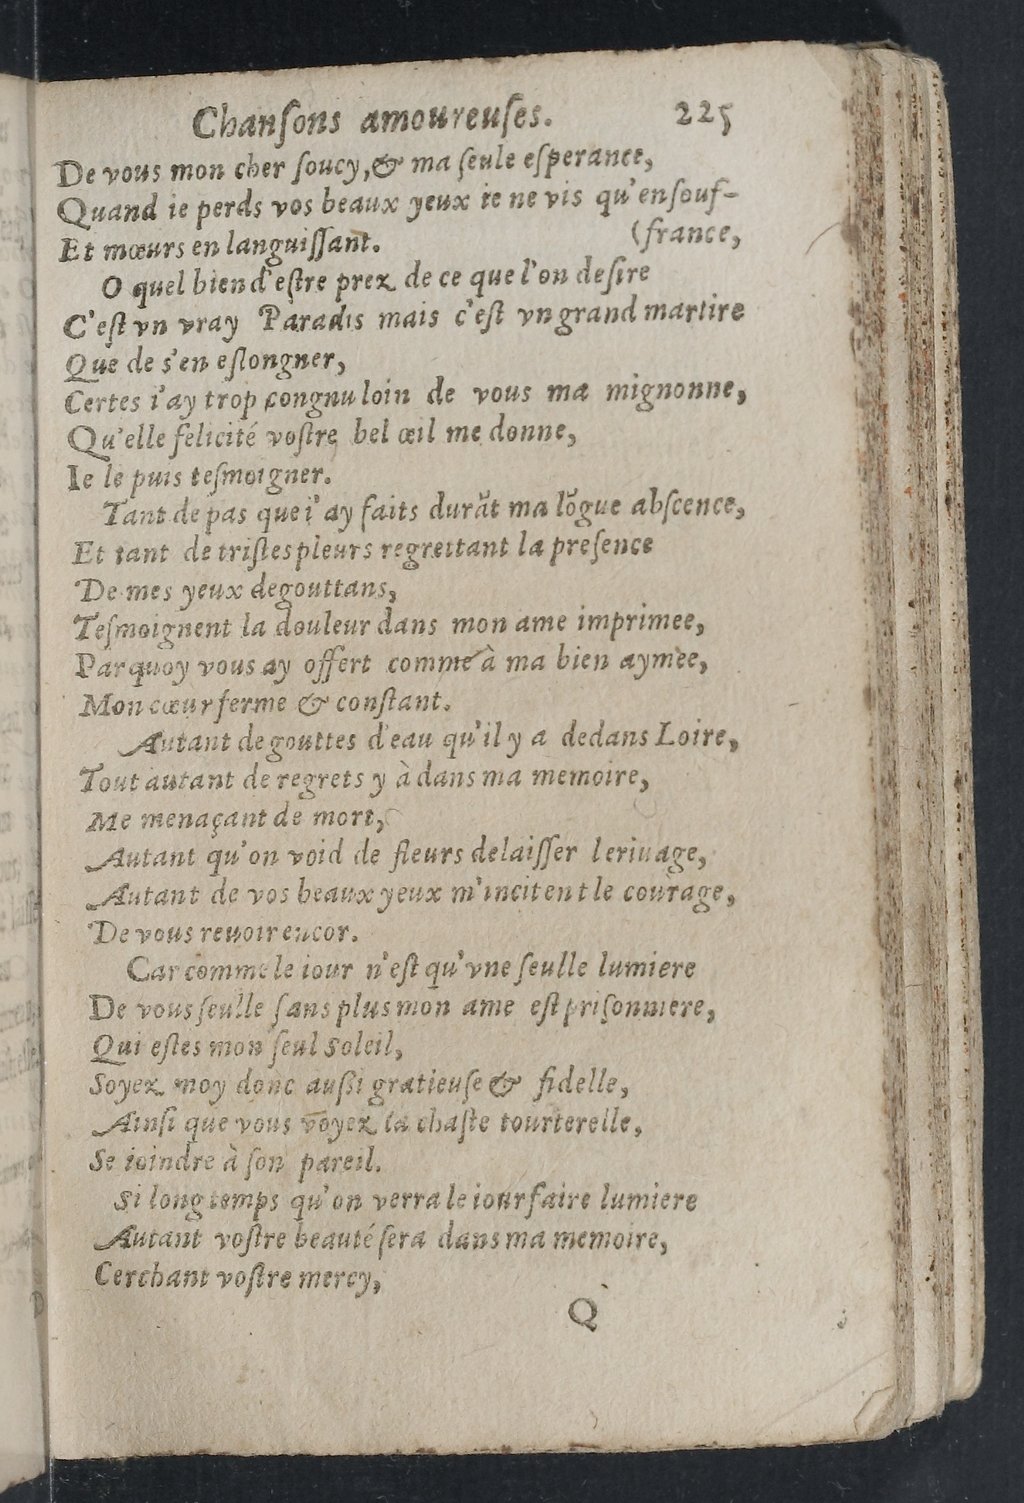 Chanſons amoureuſes. 225
De vous mon cher ſoucy, & ma ſeule eſperance,
Quand ie perds vos beaux yeux ie ne vis qu'en ſouf-
Et mœurs en languiſſant. (france,
O quel bien d'eſtre prez de ce que l'on deſire
C'eſt vn vray Paradis mais c'eſt vn grand martire
Que de s'en eſlongner,
Certes i'ay trop congnu loin de vous ma mignonne,
Qu'elle felicité voſtre bel œil me donne,
Ie le puis teſmoigner.
Tant de pas que i'ay faits durãt ma lõgue abſcence,
Et tant de triſtes pleurs regrettant la preſence
De mes yeux degouttans,
Teſmoignent la douleur dans mon ame imprimee,
Parquoy vous ay offert comme à ma bien aymèe,
Mon cœur ferme & conſtant.
Autant de gouttes d'eau qu'il y a dedans Loire,
Tout autant de regrets y à dans ma memoire,
Me menaçant de mort,
Autant qu'on void de fleurs delaiſſer le riuage,
Autant de vos beaux yeux m'incitent le courage,
De vous reuoir encor.
Car comme le iour n'eſt qu'vne ſeulle lumiere
De vous ſeulle ſans plus mon ame eſt priſonniere,
Qui eſtes mon ſeul Soleil,
Soyez moy donc auſſi gratieuſe & fidelle,
Ainſi que vous voyez la chaſte tourterelle,
Se ioindre à ſon pareil.
Si long temps qu'on verra le iour faire lumiere
Autant voſtre beauté ſera dans ma memoire,
Cerchant voſtre mercy,
Q